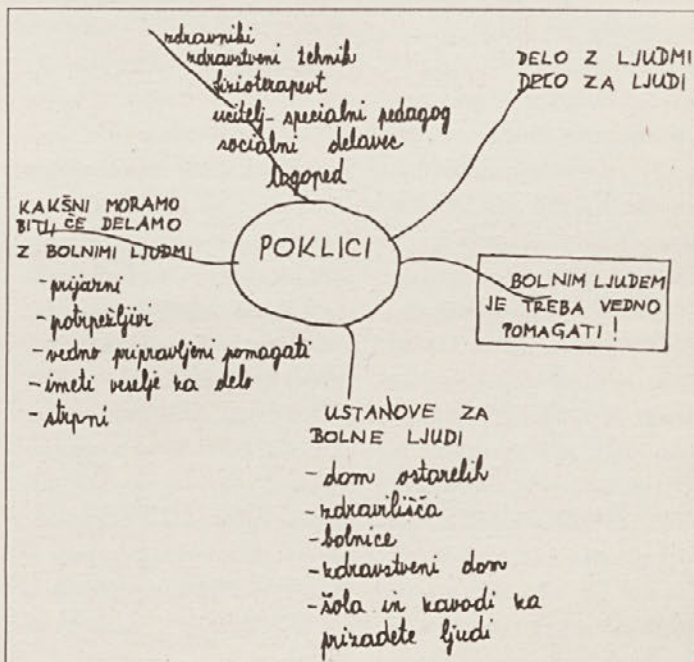 zdravniki
zdravstveni tehnik
fizioterapevt
učitelj - specialni pedagog
socialni delavec
logoped
DELO Z LJUDMI
DELO ZA LJUDI
KAKŠNI MORAMO
BITI, ČE DELAMO
Z BOLNIMI LJUDMI
- prijazni
- potrpežljivi
- vedno pripravljeni pomagati
- imeti veselje za delo
- strpni
POKLICI
BOLNIM LJUDEM
JE TREBA VEDNO
POMAGATI!
USTANOVE ZA
BOLNE LJUDI
- dom ostarelih
- zdravilišča
- bolnice
- zdravstveni dom
- šola in zavodi za
prizadete ljudi